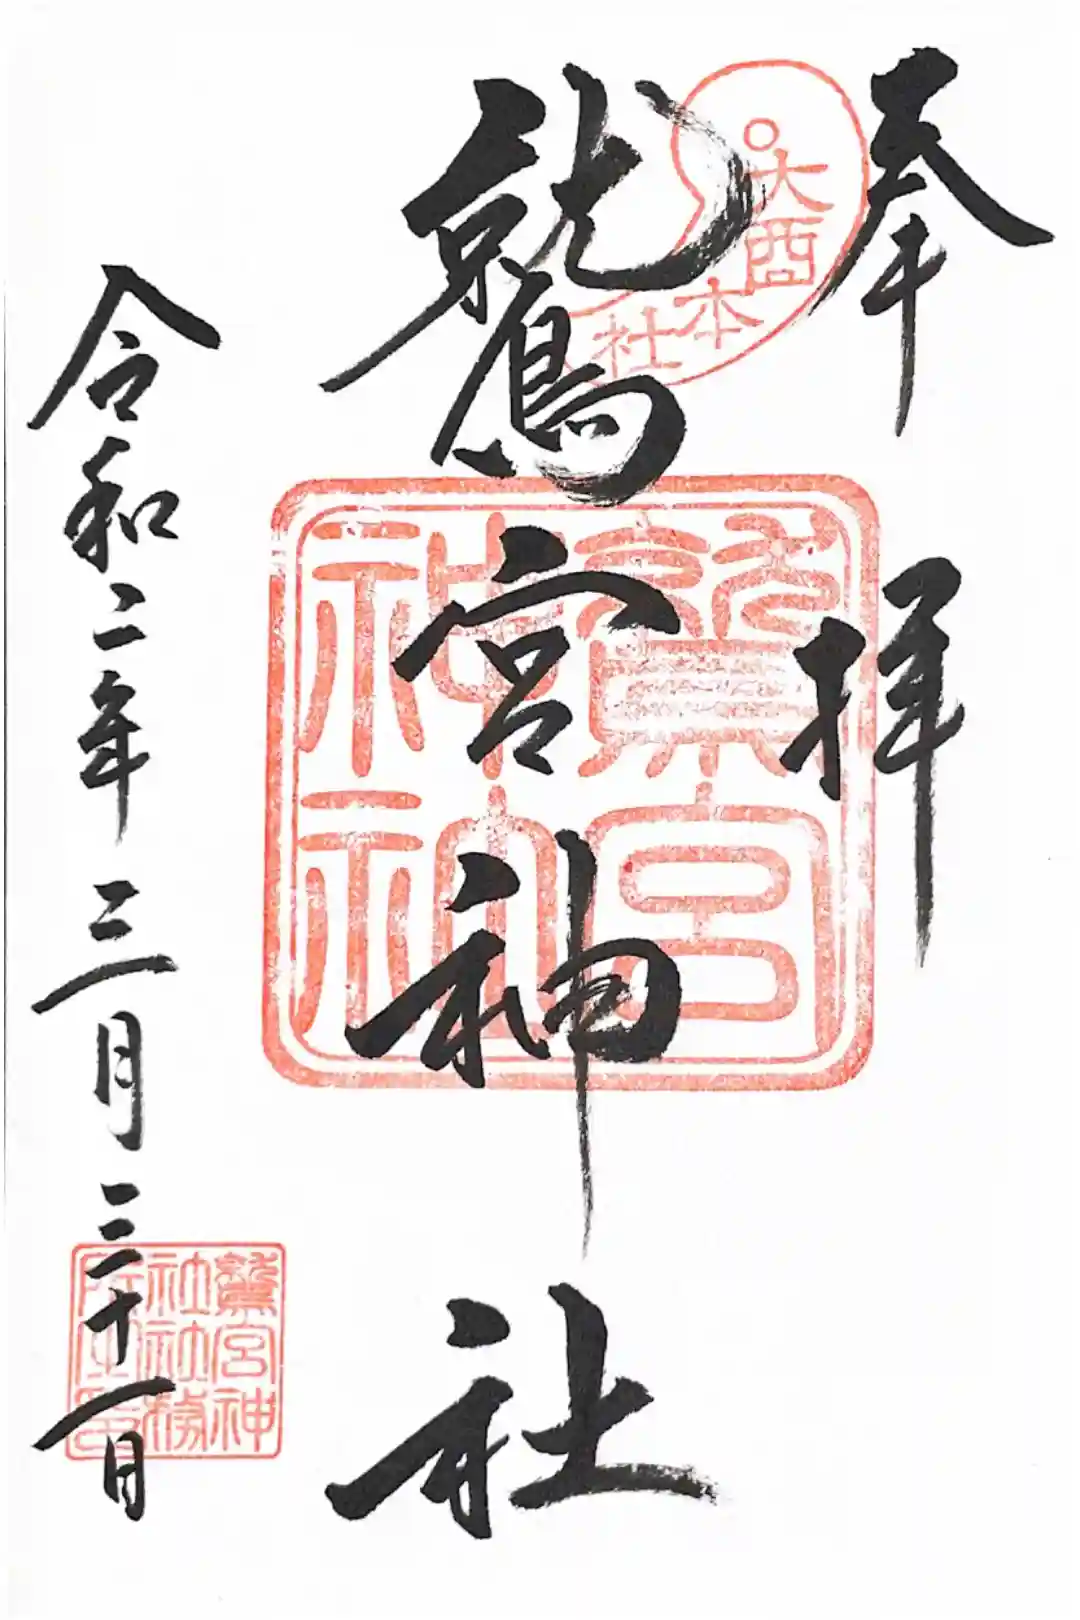 奉拝
大酉本社
鷲宮神社
鷲宮神社
令和二年三月三十一日
鷲宮神
社社務
所之印